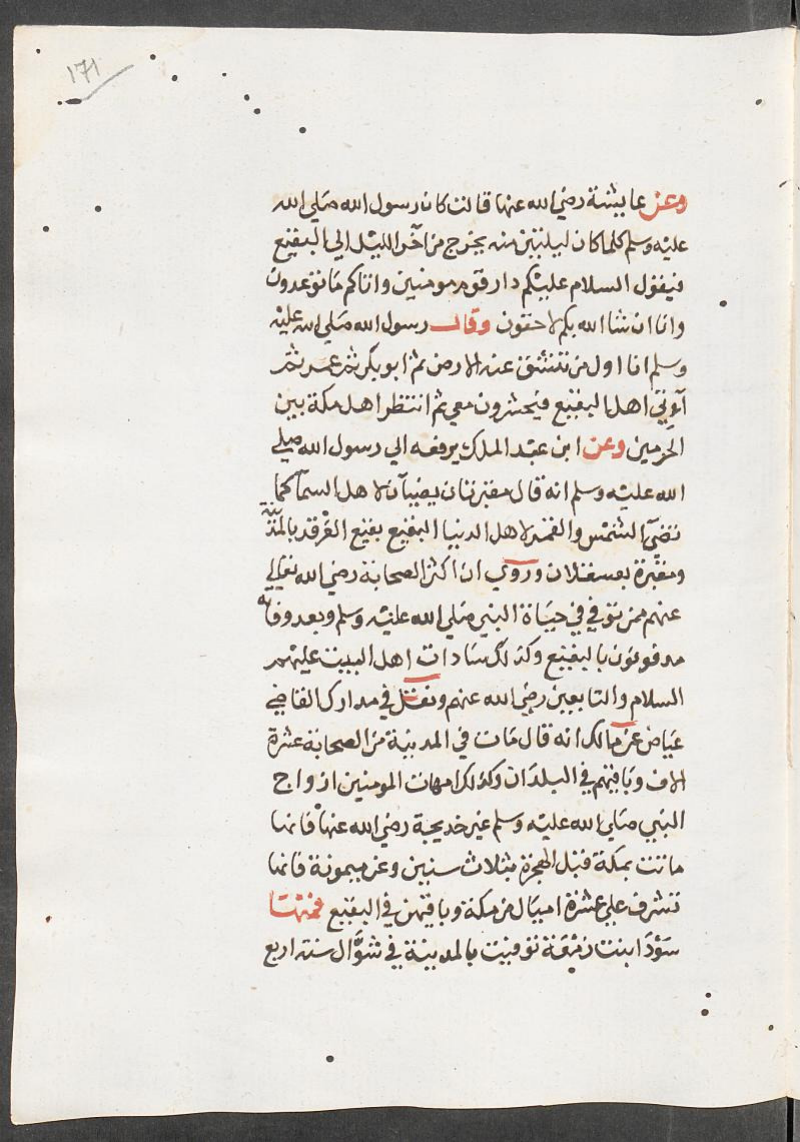 ١٧١
وعن عايشة رضي الله عنها قالت كان رسول الله صلي الله
عليه وسلم كلما كان ليلتين منه يخرج من آخر الليل الي البقيع
فيقول السلام عليكم دار قوم مومنين واتاكم ما توعدون
وانا ان شا الله بكم لاحقون وقال رسول الله صلي الله عليه
وسلم انا اول من تنشق عنه الارض ثم ابو بكر ثم عمر ثم
آوتي اهل البقيع فيحشرون معي ثم انتظر اهل مكة بين
الحرمين وعن ابن عبد الملك يرفعه الي رسول الله صلي
الله عليه وسلم انه قال مقبرتان يضيآن لاهل السمآ كما
تضيَ الشمس والقمر لاهل الدنيا البقيع بقيع الغرقد بالمدينة
ومقبرة بعسقلان وروي ان اكثر الصحابة رضي الله تعالي
عنهم ممن توفي في حياة النبي صلي الله عليه وسلم وبعد وفاته
مدفونون بالبقيع وكذلك سادات اهل البيت عليهم
السلام والتابعين رضي الله عنهم ونقل في مدارك القاضي
عياض عن مالك انه قال مات في المدينة من الصحابة عشرة
الاف وباقيهم في البلدان وكذلك امهات المومنين ازواج
النبي صلي الله عليه وسلم غير خديجة رضي الله عنها فانها
ماتت بمكة قبل الهجرة بثلاث سنين وغير ميمونة فانها
تشرف علي عشرة اميال من مكة وباقيهن في البقيع فمنها
سودا بنت زمعة توفيت بالمدينة في شوال سنه اربع